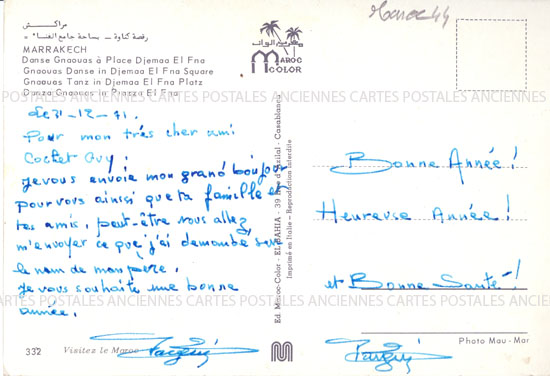 مراكش
رقصة كناوة - ساحة جامع الفنا
MARRAKECH
Danse Gnaouas à Place Djemaa El Fna
Gnaouas Danse in Djemaa El Fna Square
Gnaouas Tanz in Djemaa El Fna Platz
Danza Gnaouas in Piazza El Fna
MAROC
COLOR
Maroc 44
CARTES POSTALES ANCIENNES CARTES POSTALES ANCIENNES CARTES POSTALES
de 31-12-71.
Pour mon très cher ami
Cochet Guy!
Je vous envoie mon grand boujour
pour vous ainsi que ta famille et
tes amis, peut-être vous allez
m'envoyer ce que j'ai demandé sur
le nom de mon père.
Je vous souhaite une bonne
année.
Bonne Année!
Heureuse Année!
et Bonne Santé!
CARTES POSTALES ANCIENNES CARTES POSTALES ANCIENNES CARTES POSTALES
Ed. Maroc-Color - EL BAHIA - 39 Rue d'Azilal - Casablanca
Imprimé en Italie - Reproduction interdite
332
Visitez le Maroc
Photo Mau-Mar